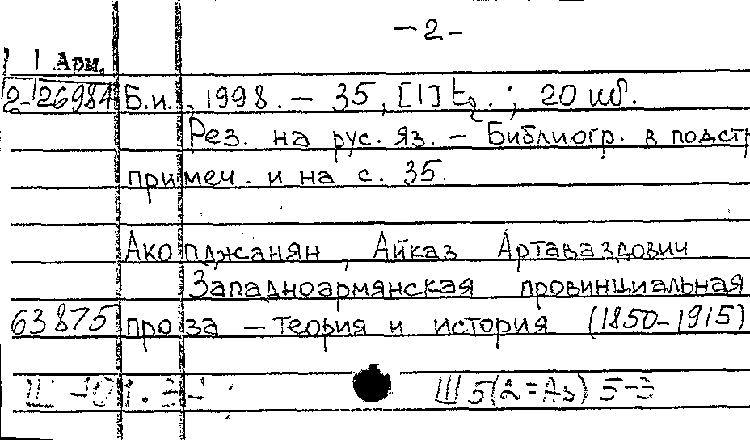 -2-
Арм.
2-26984 Б.и., 1998. – 35, [1] էջ. ; 20 սմ.
Рез. на рус. яз. – Библиогр. в подстр
примеч. и на с. 35.
Акопджанян, Айказ Артаваздович
Западноармянская провинциальная
63875 проза – теория и история (1850-1915)
Ш5(2=Аз)5-3